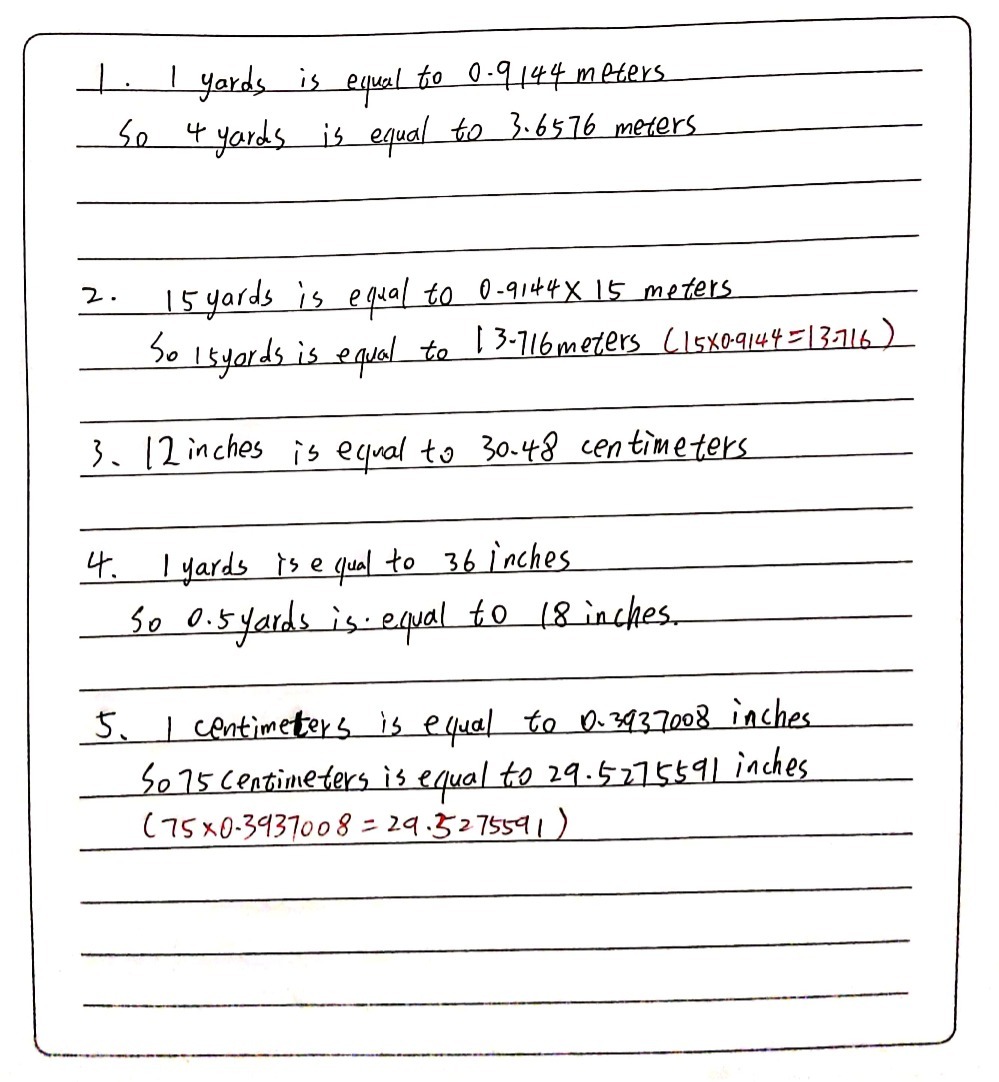 1. 1 yards is equal to 0.9144 meters
So 4 yards is equal to 3.6576 meters
2. 15 yards is equal to 0.9144 X 15 meters
So 15yards is equal to 13.716 meters (15X0.9144=13.716)
3、12 inches is equal to 30.48 centimeters
4. 1 yards is equal to 36 inches
So 0.5 yards is. equal to 18 inches.
5、1 centimeters is equal to 0.3937008 inches
So 75 centimeters is equal to 29.5275591 inches
(75×0.3937008 = 29.5275591)